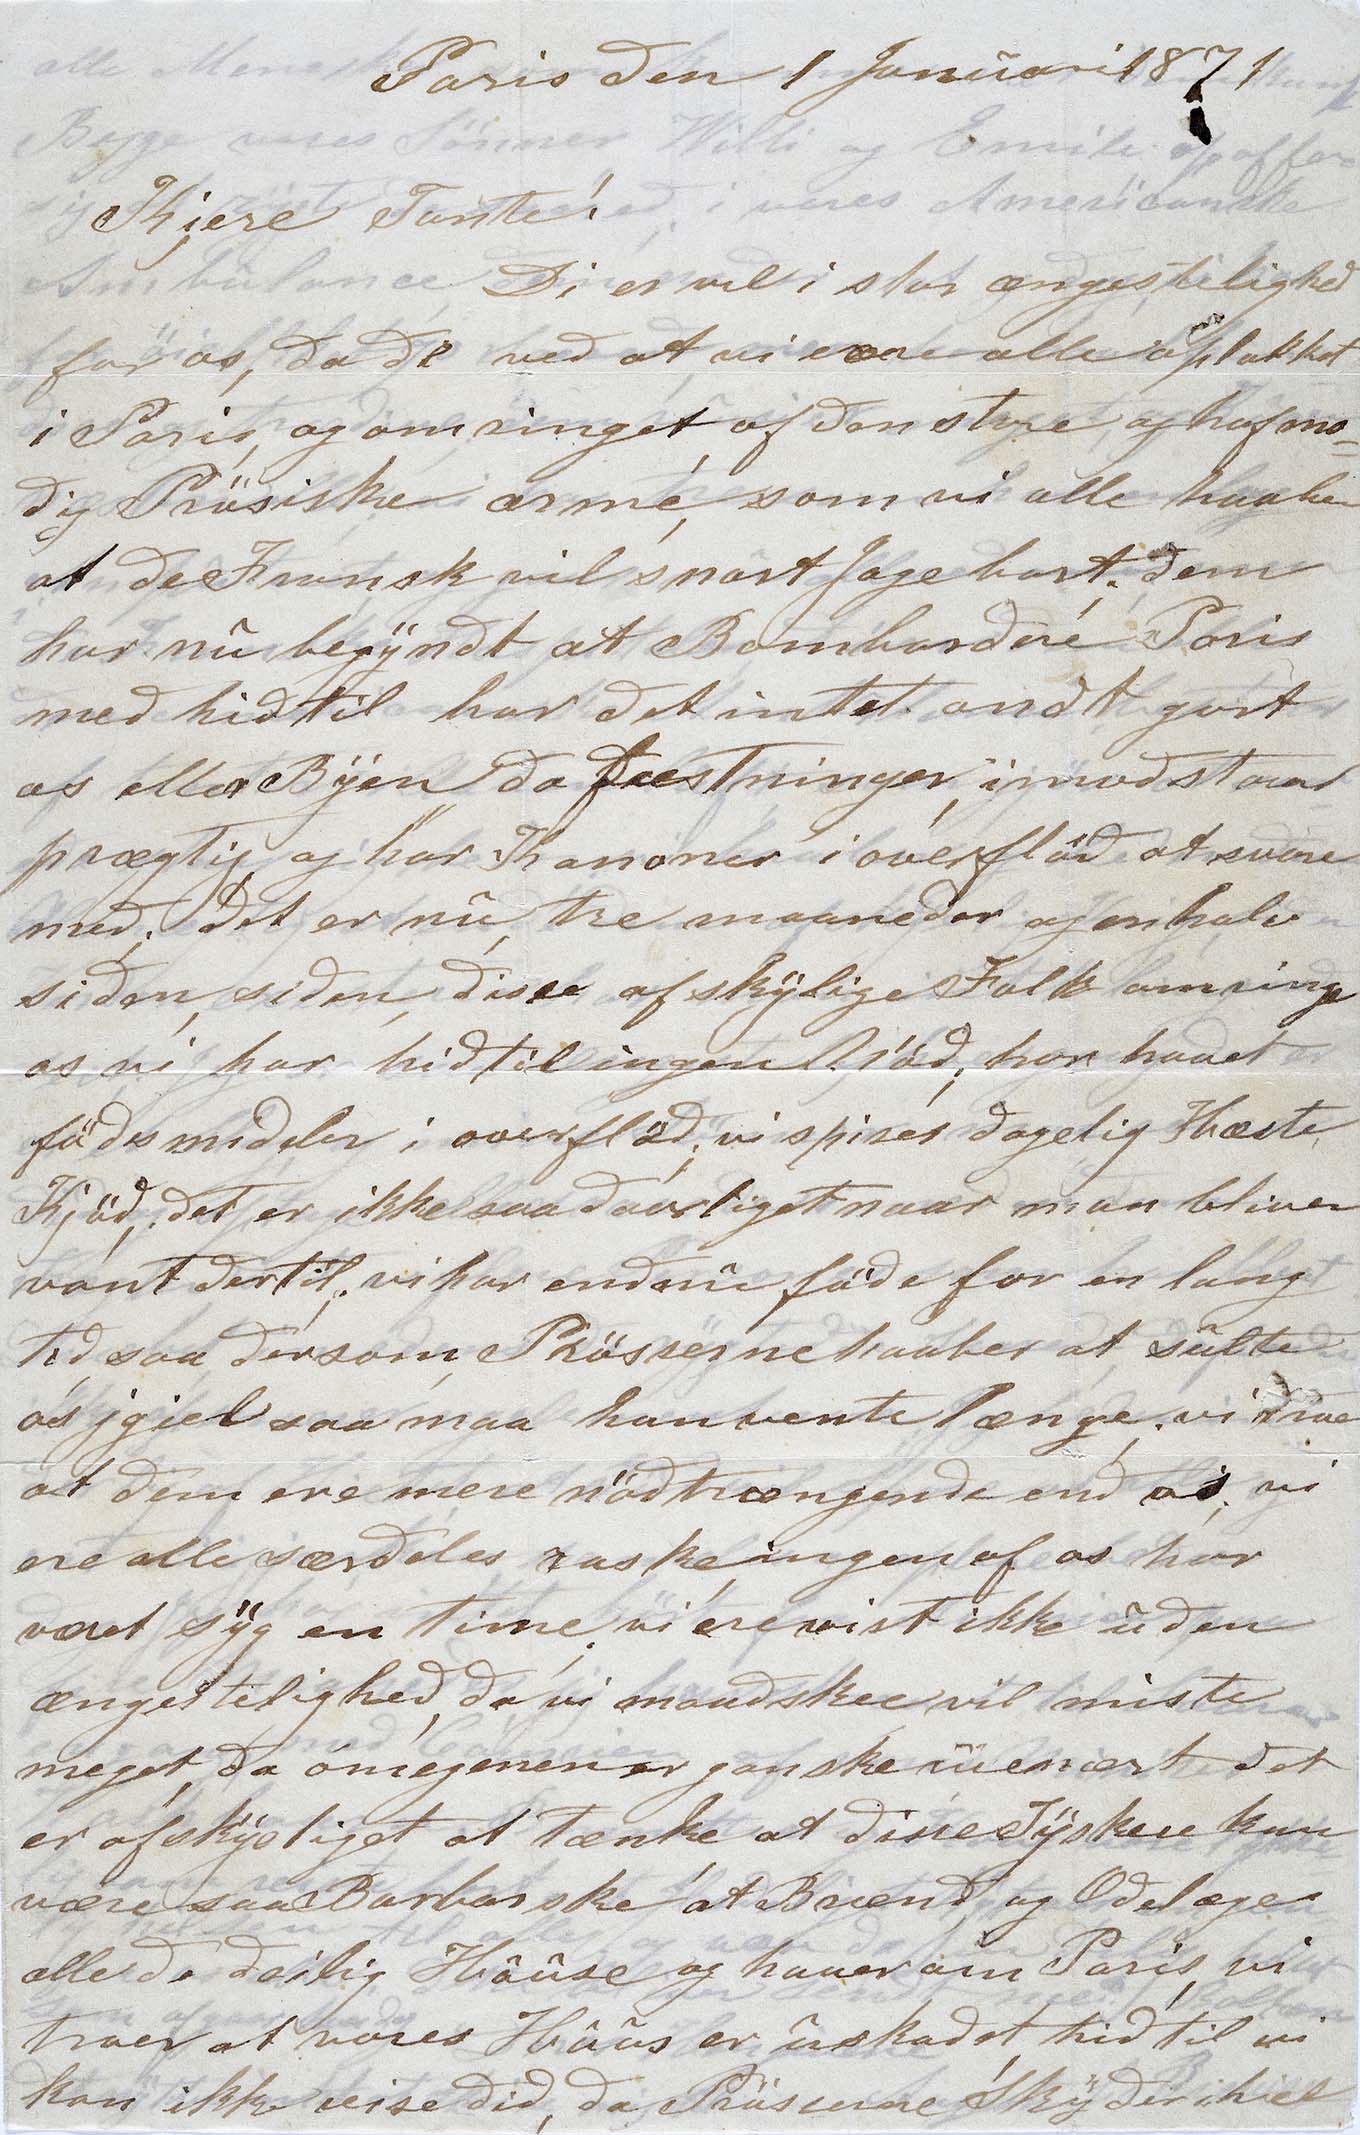 Paris den 1 Januari 1871
Kjere Tante!
Di er vel i stor ængestelighed
for os, da de ved at vi ere alle oplukket
i Paris, og omringet af den styre og hofmo=
dig Prüsiske armé, som vi alle haaber
at de Fransk vil snart Jage bort. dem
har nu begÿndt at Bombardere Paris
med hidtil har det intet ondt giort
os eller Bÿen da feestninger imodstaar
prægtig og har Kanoner i overflöd at svare
med. Det er nu tre maaneder og en halv
siden, siden, disse afskÿlige Folk omringe
os vi har hidtil ingen Nöd, har havet
födesmedeler i overflöd; vi spises dagelig Hæste
Kjöd, det er ikke saa daarliget naar man bliver
vant dertil, vi har endnu föde for en lang
tid saa dersom Prüsserne haaber at sulte
os jgiel saa maa han vente længe. vi troe
at dem ere mere nödtrængende end os, vi
ere alle særdeles raske, ingen af os har
været sÿg en time, vi ere vist ikke uden
ængestelighed, da vi maadskee vil miste
meget, da omegenen er ganske
det
er afskÿeliget at tænke at disse Tÿskere kan
være saa Barbarske at Brænd og Odelæges
alle de deilig Hûûse og haver om Paris, vi
troer at vores Hûûs er uskadet hidtil vi
kan ikke reise did, da Prüsserne Skÿder ihiel